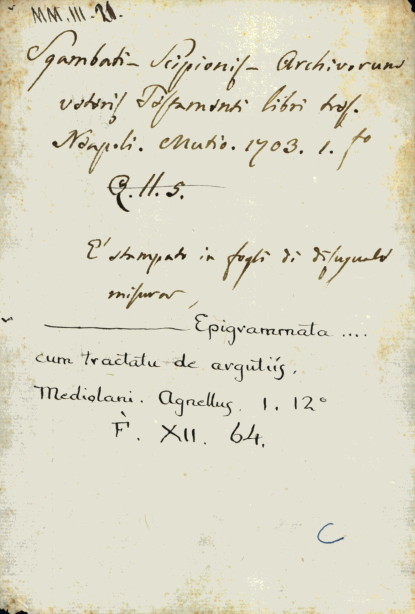 MM.III-21.
Sgambati - Scipionis - Archivorum
veteris Testamenti libri tres.
Neapoli. Mutio. 1703. 1. fo
Q.II.5.
E' stampato in fogli di disuguale
misura,
Epigrammata ....
cum tractatu de argutiis.
Mediolani. Agnellus. 1. 12°
F. XII. 64.
C